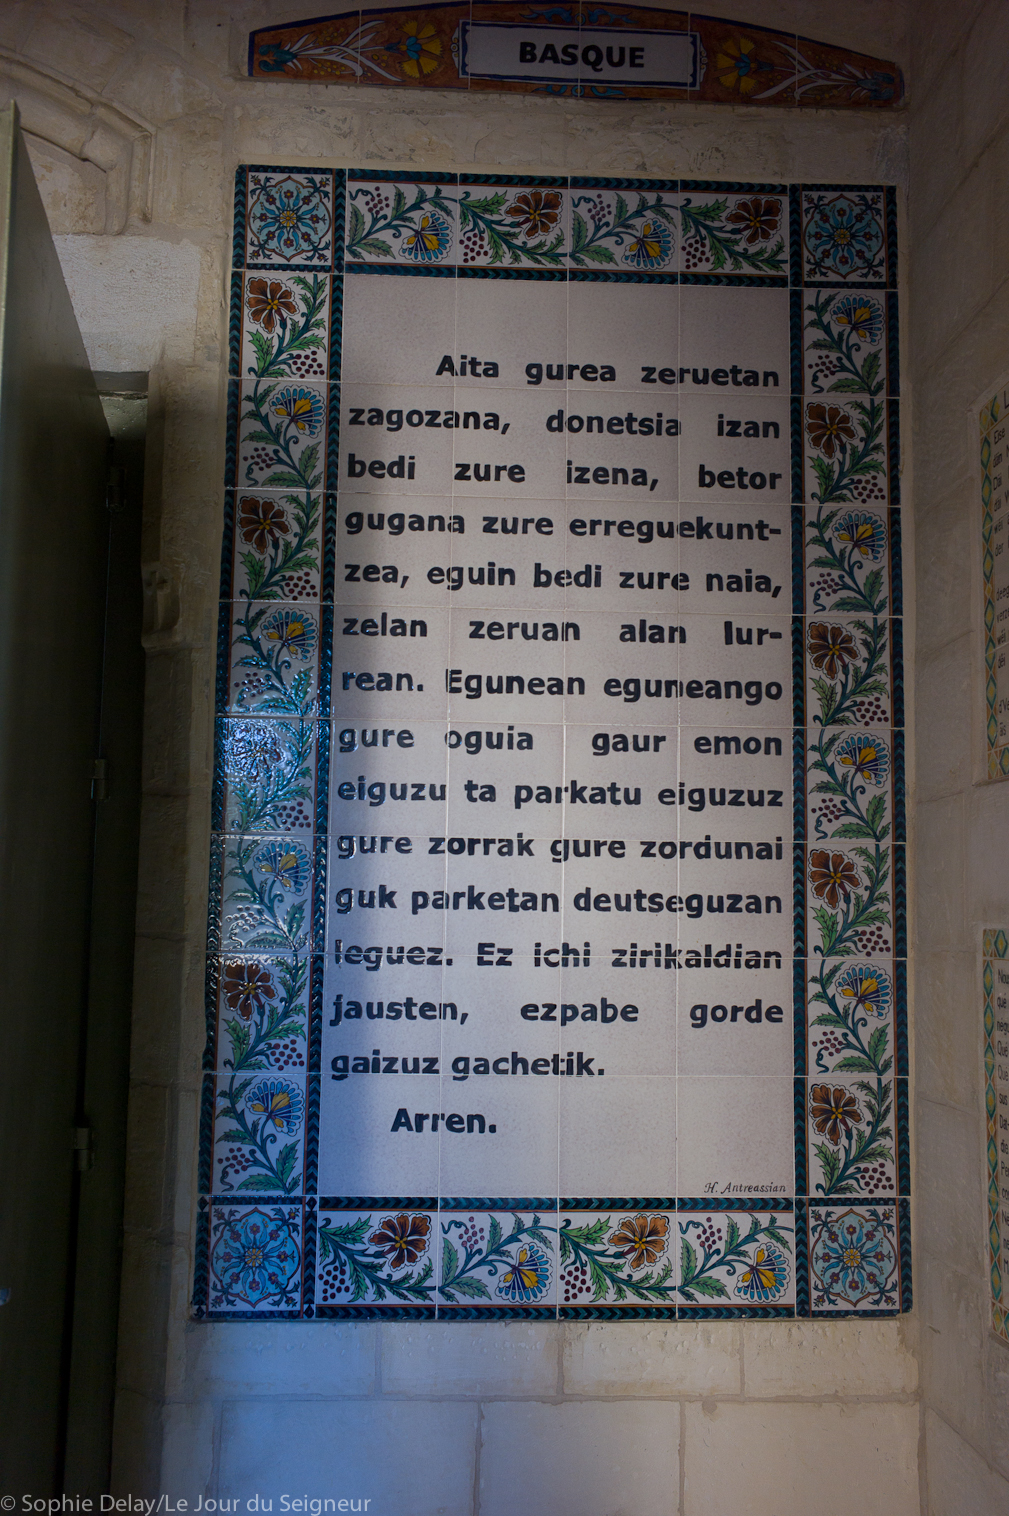 BASQUE
Aita gurea zeruetan
zagozana, donetsia izan
bedi zure izena, betor
gugana zure erreguekunt-
zea, eguin bedi zure naia,
zelan zeruan alan lur-
rean. Egunean eguneango
gure oguia gaur emon
eiguzu ta parkatu eiguzuz
gure zorrak gure zordunai
guk parketan deutseguzan
leguez. Ez ichi zirikaldian
jausten, ezpabe gorde
gaizuz gachetik.
Arren.
H. Antreassian
© Sophie Delay/Le Jour du Seigneur